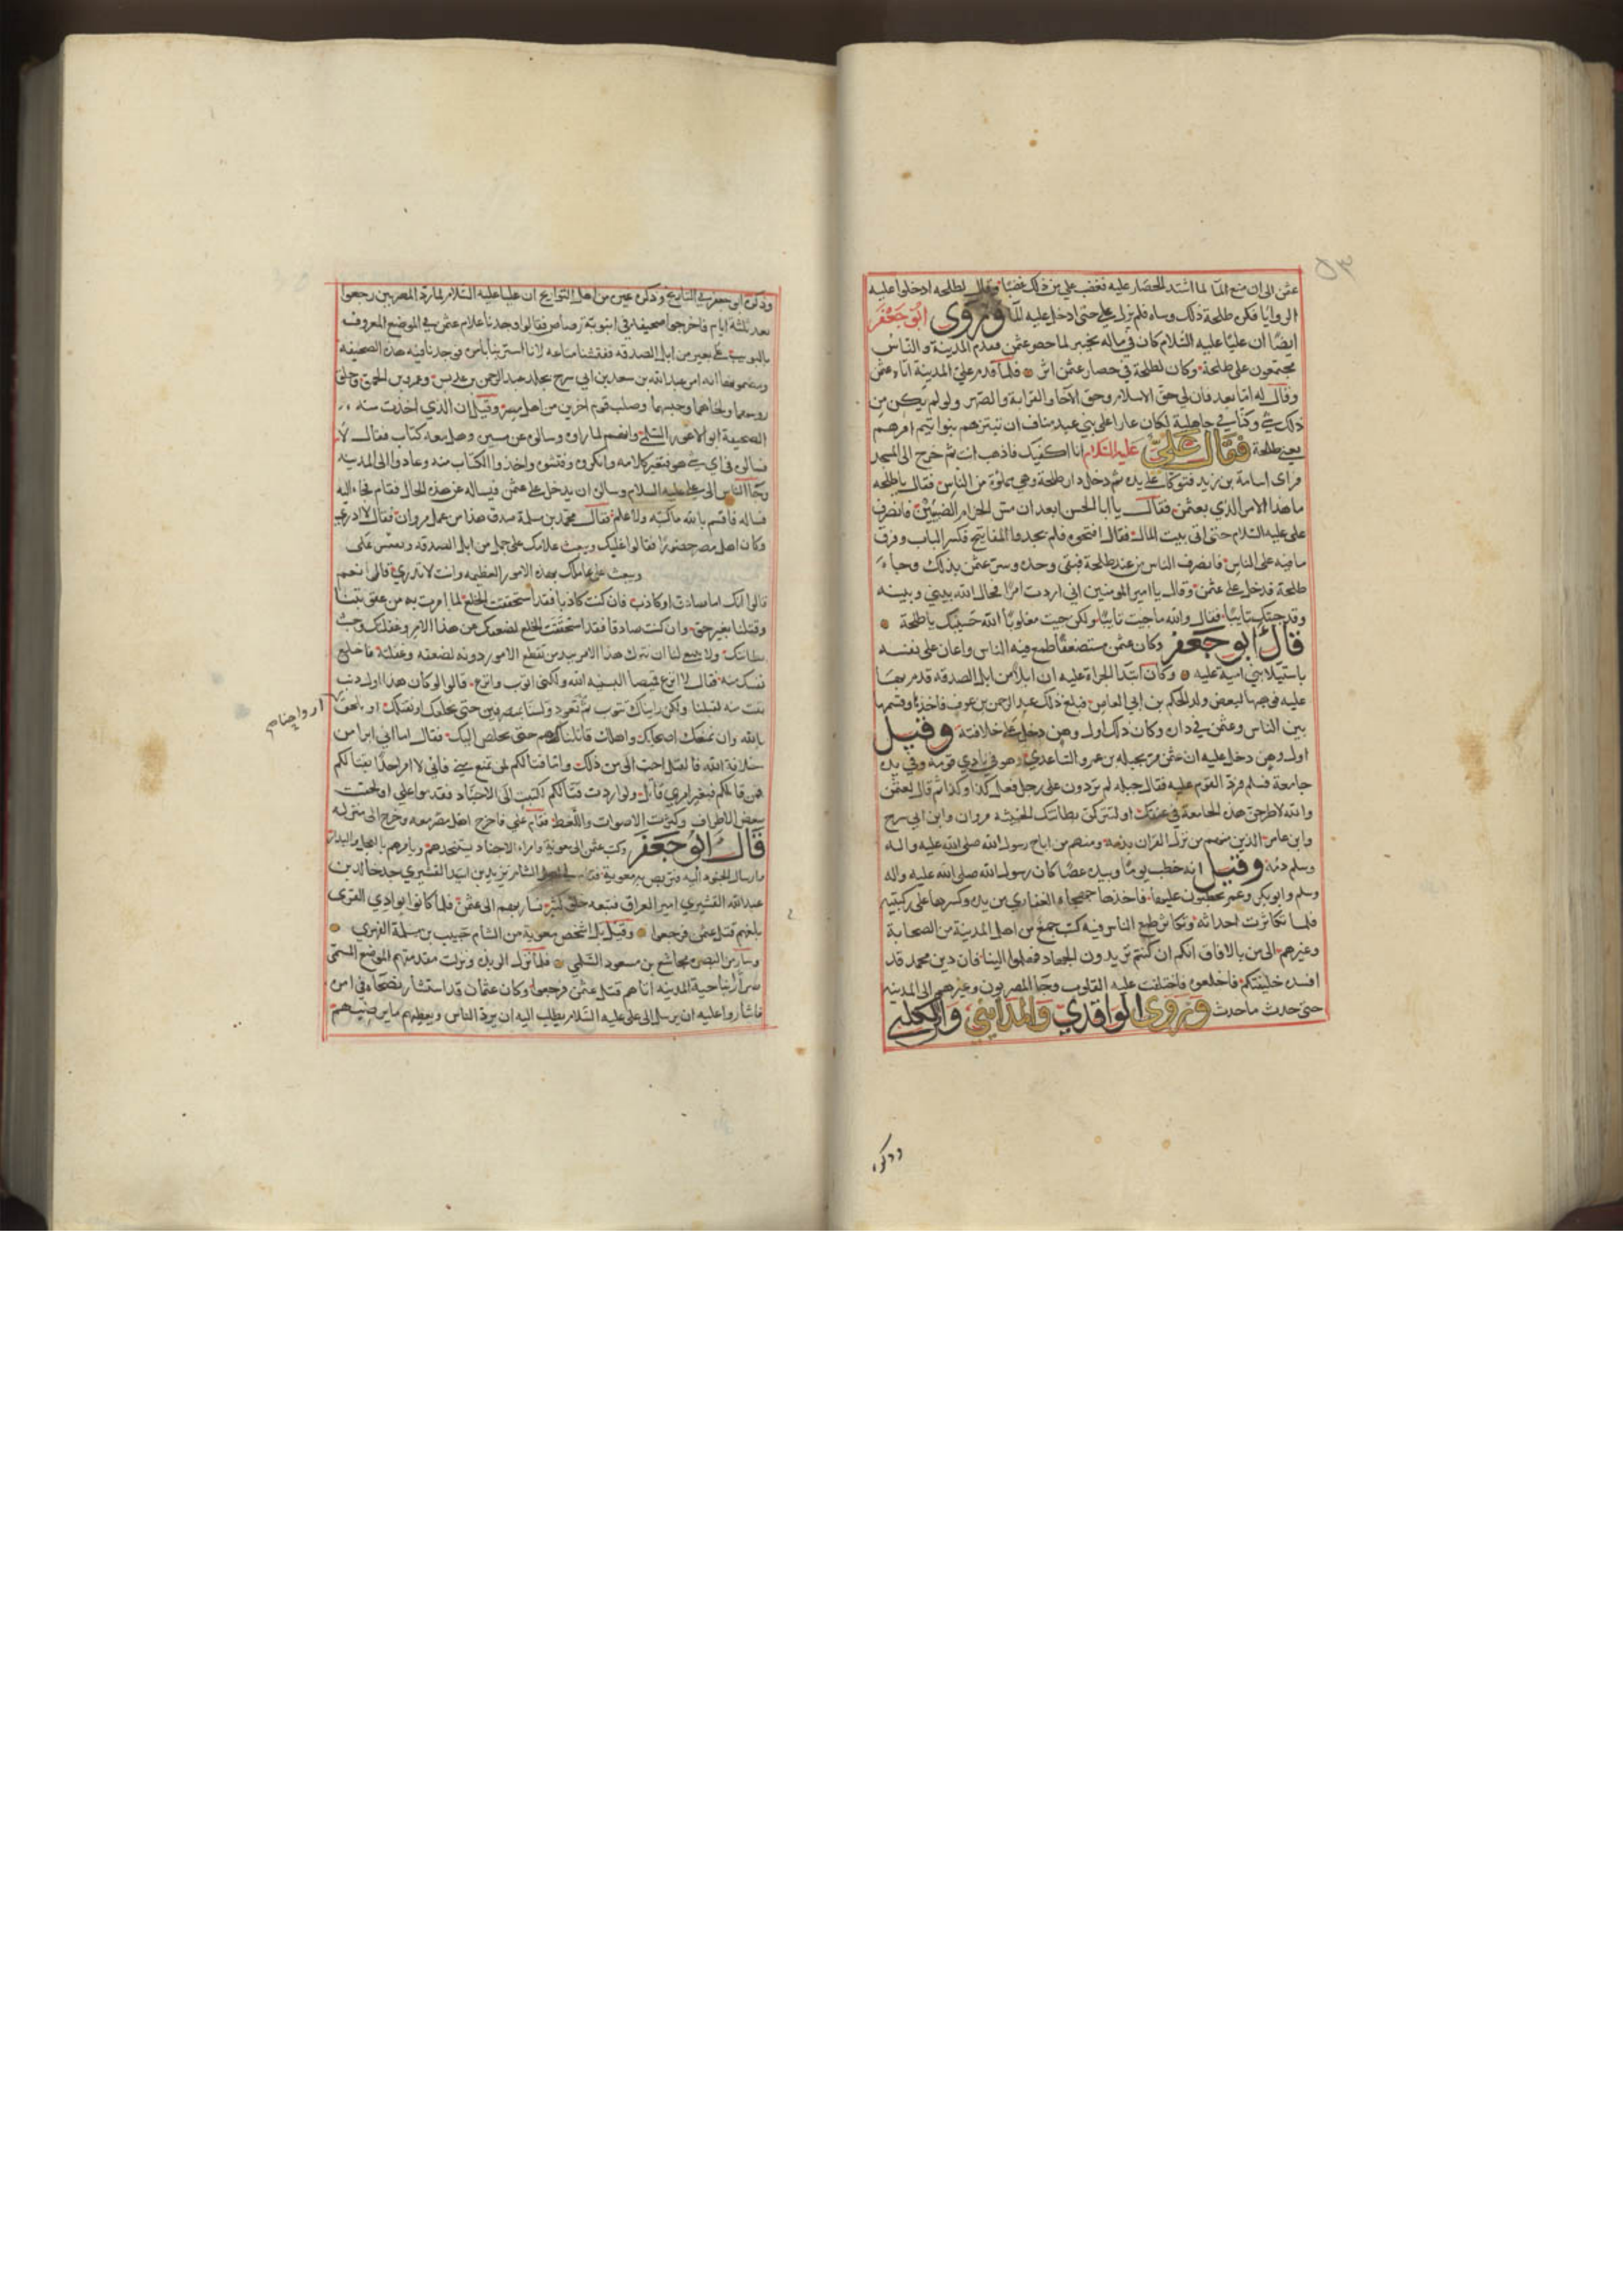 عثمن الى ان منع الماء لما اشتد الحصار عليه فغضب علي من ذلك غضبا وقال لطلحه ادخلوا عليه
الروايا فكره طلحة ذلك وساه فلم يزل علي حتى ادخل عليه الما وروى ابو جعفر
ايضا ان عليا عليه السلام كان في ماله بخيبر لما حصر عثمن فقدم المدينة والناس
مجتمعون على طلحة وكان لطلحة في حصار عثمن اثر فلما قدم علي المدينة اتاه عثمن
وقال له اما بعد فان لي حق الاسلام وحق الاخا والقرابة والصهر ولو لم يكن من
ذلك شي وكنا في جاهلية لكان عارا على بني عبد مناف ان تبتزهم بنوا تيم امرهم
يعني طلحة فقال علي عليه السلام انا اكفيك فاذهب انت ثم خرج الى المسجد
فراى اسامة بن زيد فتوكا على يده ثم دخل دار طلحة وهي مملوة من الناس فقال يا طلحه
ما هذا الامر الذي بعثمن فقال يا ابا الحسن ابعد ان مس الحزام الطبيين فانصرف
علي عليه السلام حتى اتى بيت المال فقال افتحوه فلم يجدوا المفاتيح فكسر الباب وفرق
ما فيه على الناس فانصرف الناس من عند طلحة فبقي وحده وسر عثمن بذلك وجاء
طلحة فدخل على عثمن وقال يا امير المومنين اني اردت امرا فحال الله بيني وبينه
وقد جئتك تايبا فقال والله ما جيت تايبا ولكن جيت مغلوبا الله حسيبك يا طلحة
قال ابو جعفر وكان عثمن مستضعفا طمع فيه الناس واعان على نفسه
باستيلا بني امية عليه وكان ابتدا الجراة عليه ان ابلا من ابل الصدقه قدم بها
عليه فوهبها لبعض ولد الحكم بن ابي العاص فبلغ ذلك عبد الرحمن بن عوف فاخذها وقسمها
بين الناس وعثمن في داره وكان ذلك اول وهن دخل على خلافته وقيل
اول وهن دخل عليه ان عثمن مر بجبله بن عمرو الساعدي وهو في نادي قومه وفي يده
جامعة فسلم فرد القوم عليه فقال جبله لم تردون على رجل فعل كذا وكذا ثم قال لعثمن
والله لاطرحن هذه الجامعة في عنقك او لتتركن بطانتك الخبيثه مروان وابن ابي سرح
وابن عامر الذين منهم من نزل القران بذمه ومنهم من اباح رسول الله صلى الله عليه واله
وسلم دمه وقيل انه خطب يوما وبيده عصا كان رسول الله صلى الله عليه واله
وسلم وابو بكر وعمر يخطبون عليها فاخذها جهجاه الغفاري من يده وكسرها على ركبتيه
فلما تكاثرت احداثه وتكاثر طمع الناس فيه كتب جمع من اهل المدينة من الصحابة
وغيرهم الى من بالافاق انكم ان كنتم تريدون الجهاد فهلموا الينا فان دين محمد قد
افسده خليفتكم فاخلعوه فاختلفت عليه القلوب وجا المصريون وغيرهم الى المدينه
حتى حدث ما حدث وروى الواقدي والمدايني والكلبي
وذكره
وذكره ابو جعفر في التاريخ وذكره غيره من اهل التواريخ ان عليا عليه السلام لما رد المصريين رجعوا
بعد ثلثة ايام فاخرجوا صحيفه في انبوبة رصاص فقالوا وجدنا غلام عثمن في الموضع المعروف
بالبويب على بعير من ابل الصدقه ففتشنا متاعه لانا استربنا بامره فوجدنا فيه هذه الصحيفه
ومضمونها انه امر عبد الله بن سعد بن ابي سرح بجلد عبد الرحمن بن عديس وعمرو بن الحمق وحلق
روسهما ولحاهما وحبسهما وصلب قوم اخرين من اهل مصر وقيل ان الذي اخذت منه
الصحيفة ابو الاعور السلمي وانهم لما راوه وسالوه عن مسيره وهل معه كتاب فقال لا
فسالوه في اي شي هو فتغير كلامه وانكروه وفتشوه واخذوا الكتاب منه وعادوا الى المدينه
وجا الناس الى علي عليه السلام وسالوه ان يدخل على عثمن فيساله عن هذه الحال فقام فجاء اليه
فساله فاقسم بالله ما كتبه ولا علم فقال محمد بن مسلمة صدق هذا من عمل مروان فقال لا ادري
وكان اهل مصر حضورا فقالوا افيجترا عليك ويبعث غلامك على جمل من ابل الصدقه وينقش على
ويبعث الى عاملك بهذه الامور العظيمه وانت لا تدري قال نعم
قالوا انك اما صادق او كاذب فان كنت كاذبا فقد استحققت الخلع لما امرت به من عقوبتنا
وقتلنا بغير حق وان كنت صادقا فقد استحققت الخلع لضعفك عن هذا الامر وغفلتك وخبث
بطانتك ولا ينبغي لنا ان نترك هذا الامر بيد من تقطع الامور دونه لضعفه وغفلته فاخلع
نفسك منه فقال لا انزع قميصا البسنيه الله ولكني اتوب وانزع قالوا لو كان هذا اول ذنب
تبت منه لقبلنا ولكن رايناك تتوب ثم تعود ولسنا بمنصرفين حتى نخلعك او نقتلك او تلحق
ارواحنا
بالله وان منعك اصحابك واهلك قاتلناهم حتى نخلص اليك فقال اما ان ابرا من
خلافة الله فالقتل احب الى من ذلك واما قتالكم لمن يمنع عني فاني لا امر احدا بقتالكم
فمن قاتلكم فبغير امري قاتل ولو اردت قتالكم لكتبت الى الاجناد فقدموا علي او لحقت
ببعض الاطراف وكثرت الاصوات واللغط فقام علي فاخرج اهل مصر معه وخرج الى منزله
قال ابو جعفر وكتب عثمن الى معوية وامراء الاجناد يستنجدهم ويامرهم بالعجل والبدار
وارسال الجنود اليه فتربص به معوية فقام في اهل الشام يزيد بن اسد القشيري جد خالد بن
عبد الله القشيري امير العراق فتبعه خلق كثير فسار بهم الى عثمن فلما كانوا بوادي القرى
بلغهم قتل عثمن فرجعوا وقيل بل اشخص معوية من الشام حبيب بن مسلمة الفهري
وسار من البصره مجاشع بن مسعود السلمي فلما نزلوا الربذه ونزلت مقدمتهم الموضع المسمى
صرارا بناحية المدينه اتاهم قتل عثمن فرجعوا وكان عثمان قد استشار نصحاءه في امره
فاشاروا عليه ان يرسل الى علي عليه السلام يطلب اليه ان يرد الناس ويعطيهم ما يرضيهم